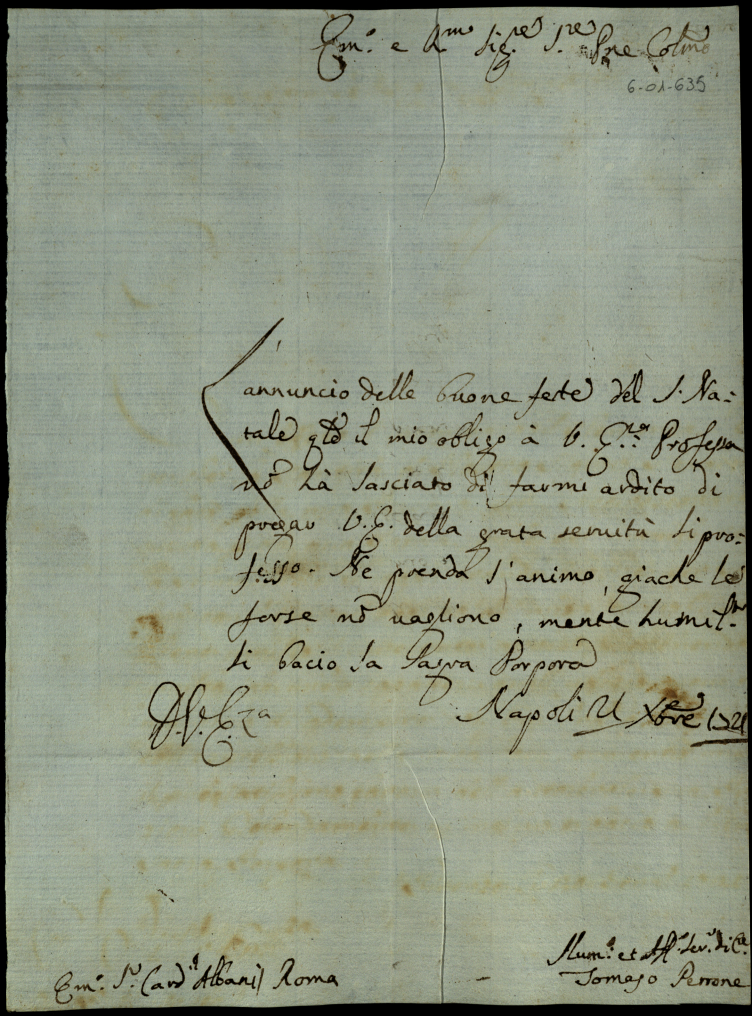 Em.º e R.mo Sig.re S.re Pne Colmo
6-01-635
L'annuncio delle buone feste del S. Na=
tale qto il mio obligo à V. E.za Professa
nō hà lasciato di farmi ardito di
pregar V.E. della grata seruitù li pro=
fesso. Ne prenda l'animo, giache le
forse nō uagliono, mente humil.te
li bacio la Sagra Porpora
D.V.E.za Napoli 21 Xbre 1721
Hum.º et Aff.º Ser.
Em.º S.r Card.l Albani / Roma Tomaso Perrone